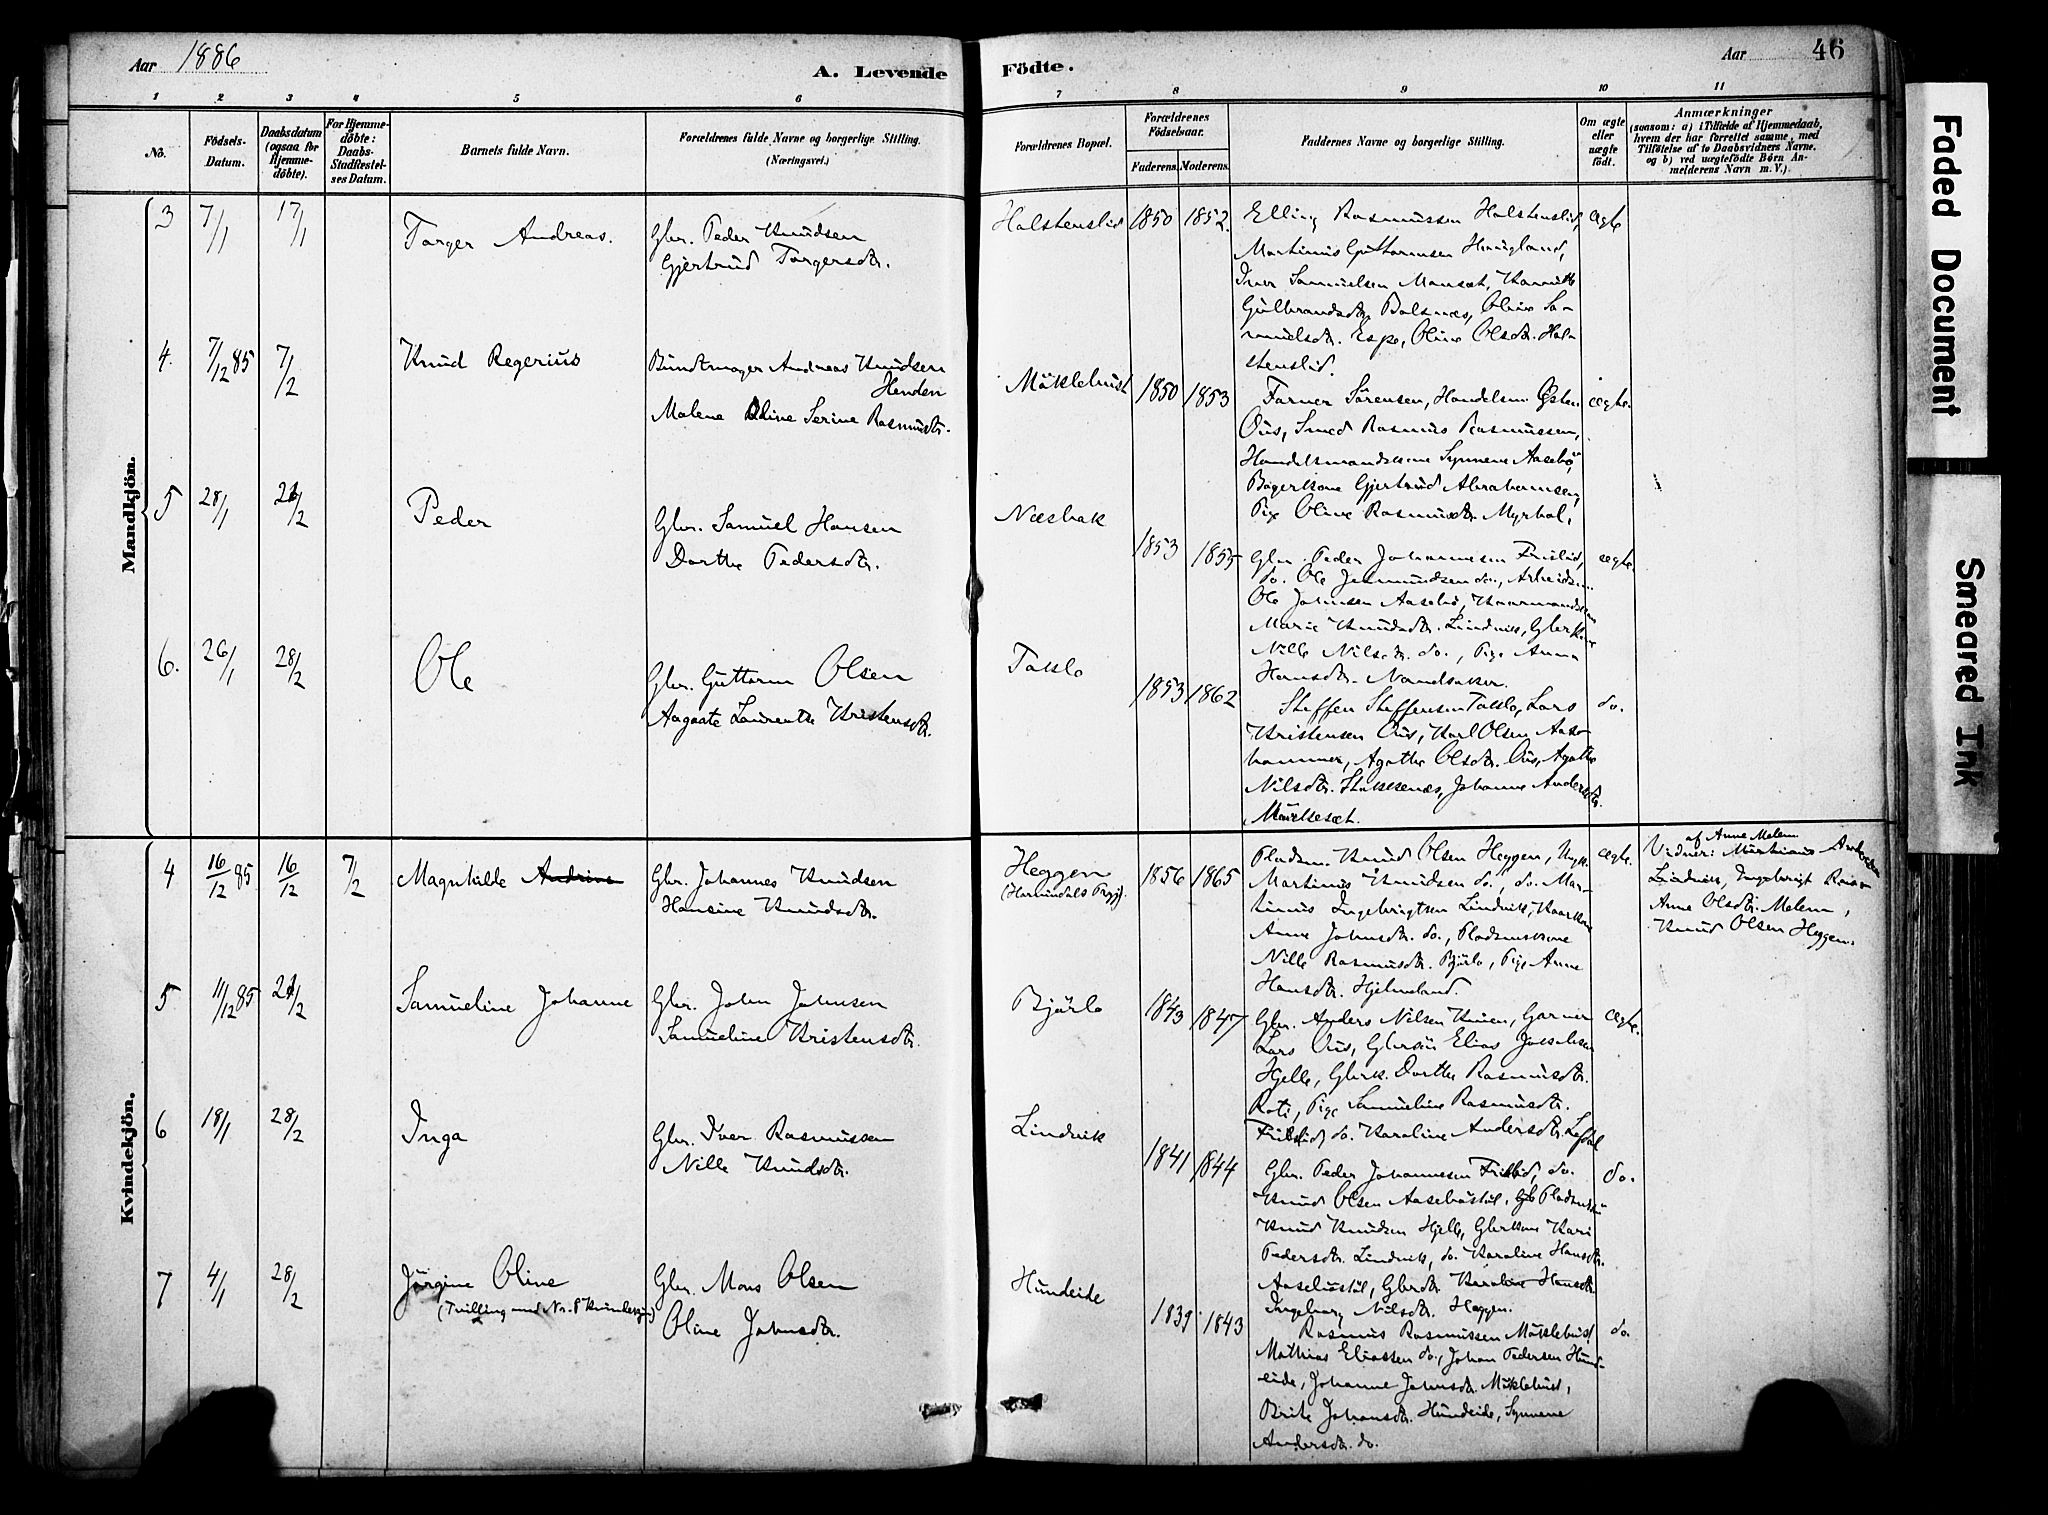 Aar 1886
A. Levende
Födte.
Aar
46
1 2 3 4 5 6 7 8 9 10 11
No.
Födsels-
Datum.
Daabsdatum
(ogsaa for
Hjemme-
döbte).
For Hjemme-
döbte:
Daabs-
Stadfæstel-
ses Datum.
Barnets fulde Navn.
Forældrenes fulde Navne og borgerlige Stilling.
(Næringsvei.)
Forældrenes Bopæl.
Forældrenes
Födselsaar.
Faderens. Moderens.
Faddernes Navne og borgerlige Stilling.
Om ægte
eller
uægte
født.
Anmærkninger
(saasom: a) i Tilfælde af Hjemmedaab,
hvem der har forrettet samme, med
Tilføielse af to Daabsvidners Navne.
og b) ved uægtefödte Börn An-
melderens Navn m. V.).
Mandkjön.
3 7/1 17/1 Torger Andreas.
Gbr. Peder Knudsen
Gjertrud Torgersdtr.
Holstenslid 1850 1852.
Elling Rasmussen Holstenslid,
Martinus Guttormsen Haugland,
Iver Samuelsen Monsæt,
Gulbrandsdtr. Bolsnæs, Oline Sa-
muelsdtr. Espe, Oline Olsdtr. Hol-
stenslid.
ægte
4. 7/12 85 7/2 Knud Regerius
Bundtmager Andreas Knudsen
Henden
Malene Oline Serine Rasmusdtr.
Möklebust 1850 1853
Farver Sörensen, Handelsm. Østen
Ous, Smed Rasmus Rasmussen,
Handelsmandskone Synneve Aasebö,
Bagerkone Gjertrud Abrahamsen,
Pige Oline Rasmusdtr. Myrhol,
ægte.
5 28/1 21/2 Peder
Gbr. Samuel Hansen
Dorthe Pedersdtr.
Næsbak
1853 1855
Gbr. Peder Johannesen Frislid,
do. Ole Jetmundsen do., Arbeidsm.
Ole Johnsen Aasebö,
Marie Knudsdtr. Lindvik, Gbrkone
Nille Nilsdtr. do., Pige Anna
Hansdtr. Navelsaker.
ægte.
6. 26/1 28/2 Ole
Gbr. Guttorm Olsen
Aagaate Laurentse Kristensdtr.
Taklo
1853 1862
Steffen Steffensen Taklo, Lars
Kristensen Ous, Karl Olsen Aaes-
hammer, Agathe Olsdtr. Ous, Agathe
Nilsdtr. Stokkenæs, Johanne Andersdtr.
Mörkesæt.
do.
Kvindekjön.
4 16/12 85 16/12 7/2 Magnhilde Andrine
Gbr. Johannes Knudsen
Hansine Knudsdtr.
Heggen
(Hornindals Prgj).
1856 1865
Pladsm. Knud Olsen Heggen, Ungk.
Martinus Knudsen do., do. Mar-
tinus Ingebrigtsen Lindvik, Kaarkone
Anne Johnsdtr. do., Pladsmkone
Nille Rasmusdtr. Bjørlo, Pige Anne
Hansdtr. Hjelmeland.
ægte.
af Anne Melem
Vidner: Martinus Andersen
Lindvik, Ingebrigt
Anne Olsdtr. Melem,
Knud Olsen Heggen.
5 11/12 85 21/2 Samueline Johanne
Gbr. John Johnsen
Samueline Kristensdtr.
Bjørlo 1843 1847
Gbr. Anders Nilsen Knien, Garver
Lars Ous, Gbrsön Elias Jakobsen
Hjelle, Gbrk. Dorthe Rasmusdtr.
Roti, Pige Samueline Rasmusdtr.
Frislid, do. Karoline Andersdtr. Lefdal
ægte.
6 18/1 28/2 Inga
Gbr. Iver Rasmussen
Nille Knudsdtr.
Lindvik
1841 1844
Gbr. Peder Johannesen Frislid, do.
Knud Olsen Aaseböstöl,
Knud Knudsen Hjelle, Gbrkone Kari
Pedersdtr. Lindvik, do. Karoline Hansdtr.
Aaseböstöl, Gbrdtr. Karoline Hansdtr.
Ingeborg Nilsdtr. Heggen.
do.
7 4/1 28/2 Jörgine Oline
(Tvilling med Nr. 8 Kvindekjön)
Gbr. Mons Olsen
Oline Johnsdtr.
Hundeide
1839 1843
Rasmus Rasmussen Möklebust,
Mathias Eliassen do., Johan Pedersen Hund-
eide, Johanne Johnsdtr. Möklebust,
Brite Johansdtr. Hundeide, Synneve
Andersdtr. do.
do.
Faded Document
Smeared Ink